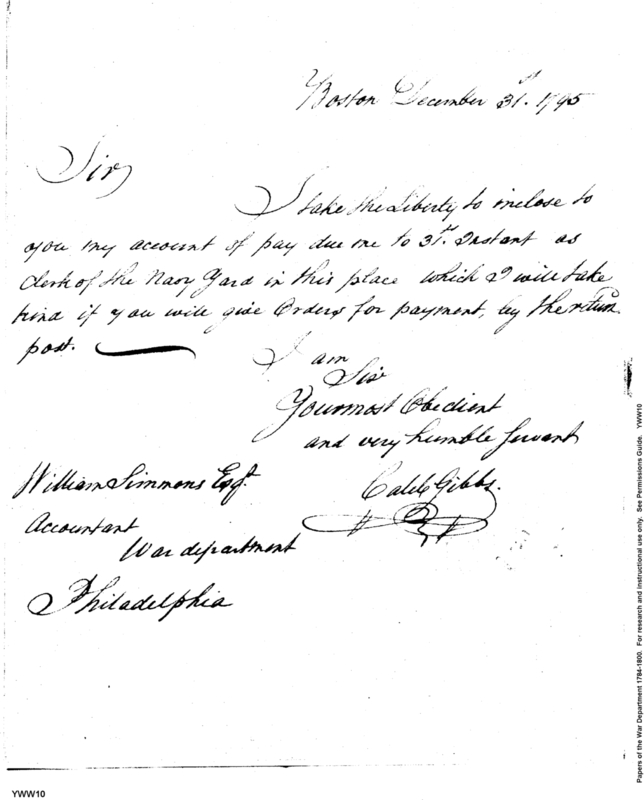 Boston December 31st. 1795
Sir
I take the Liberty to inclose to
you my account of pay due me to 31st. Instant as
Clerk of the Navy Yard in this place which I will take
kind if you will give Orders for payment, by the return
post.
I am
Sir
Your most Obedient
and very humble Servant
Caleb Gibbs.
William Simmons Esqr.
Accountant
War department
Philadelphia
Papers of the War Department 1784-1800. For research and instructional use only. See Permissions Guide. YWW10
YWW10